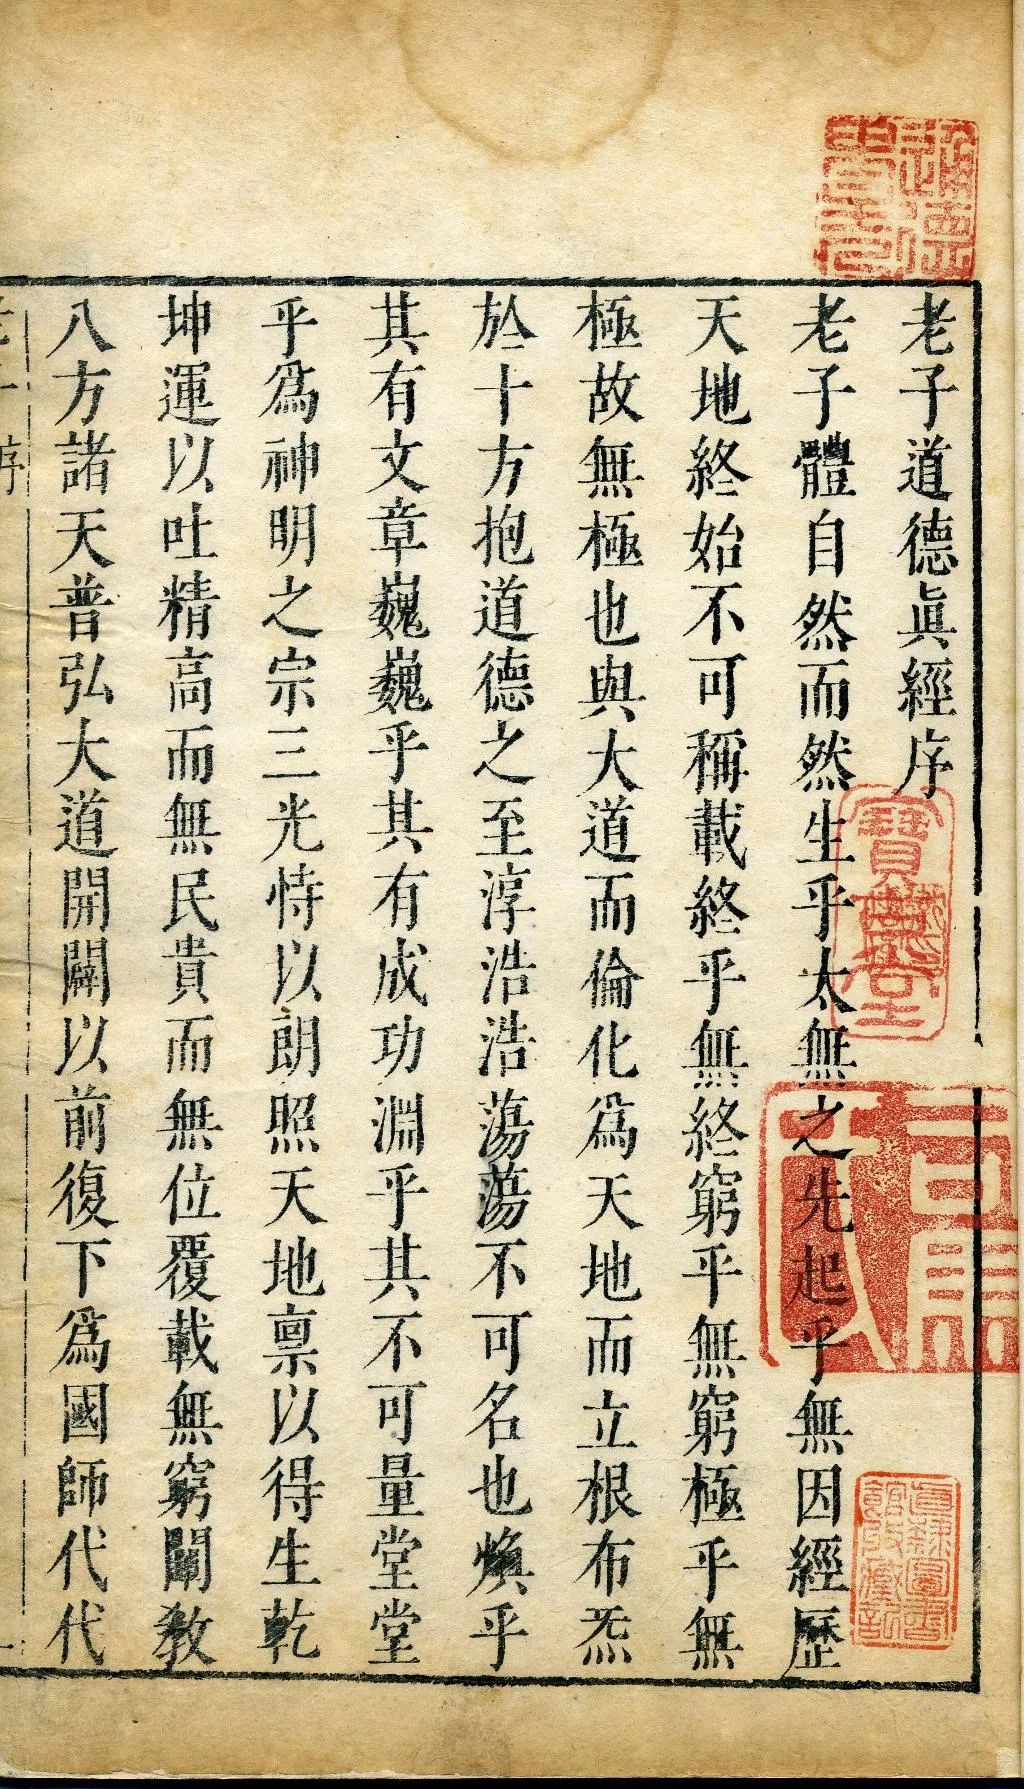 老子道德眞經序
老子體自然而然生乎太無之先起乎無因經歷
天地終始不可稱載終乎無終窮乎無窮極乎無
極故無極也與大道而倫化爲天地而立根布炁
於十方抱道德之至淳浩浩蕩蕩不可名也煥乎
其有文章巍巍乎其有成功淵乎其不可量堂堂
乎爲神明之宗三光恃以朗照天地禀以得生乾
坤運以吐精高而無民貴而無位覆載無窮闡敎
八方諸天普弘大道開闢以前復下爲國師代代